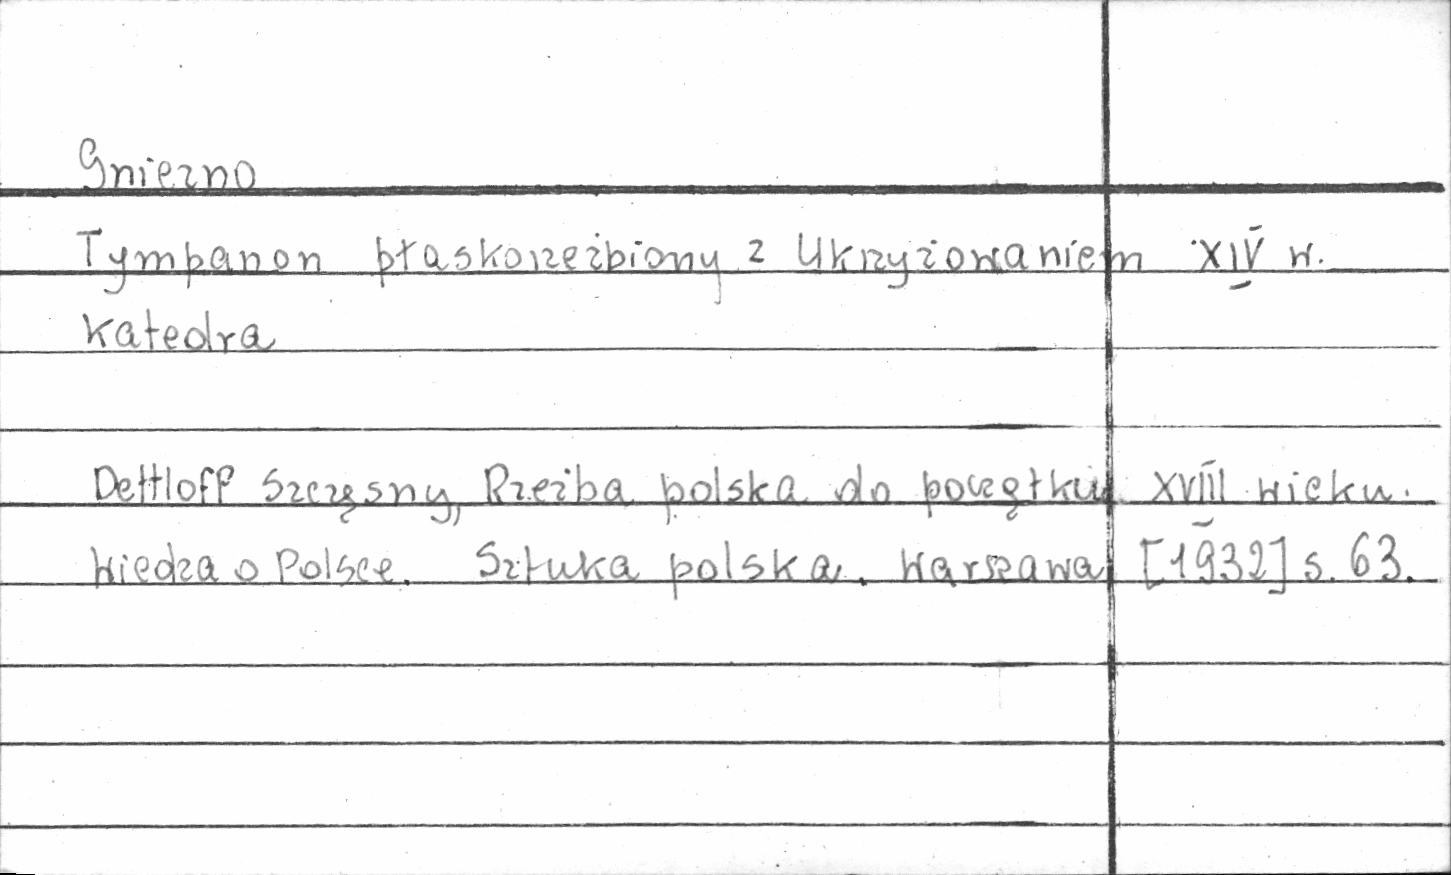 Gniezno
Tympanon płaskorzeźbiony z Ukrzyżowaniem XIV w.
Katedra
Dettloff Szczęsny, Rzeźba polska do początku XVIII wieku.
Wiedza o Polsce. Sztuka polska. Warszawa [1932] s. 63.